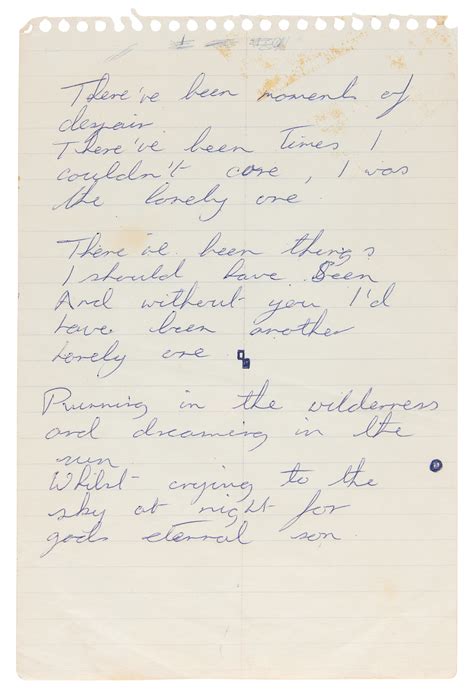 There've been moments of
despair
There've been Times I
couldn't care, I was
the lonely one
There've been things
I should have seen
And without you I'd
have been another
lonely one
Running in the wilderness
and dreaming in the
run
Whilst crying to the
sky at night for
gods eternal son